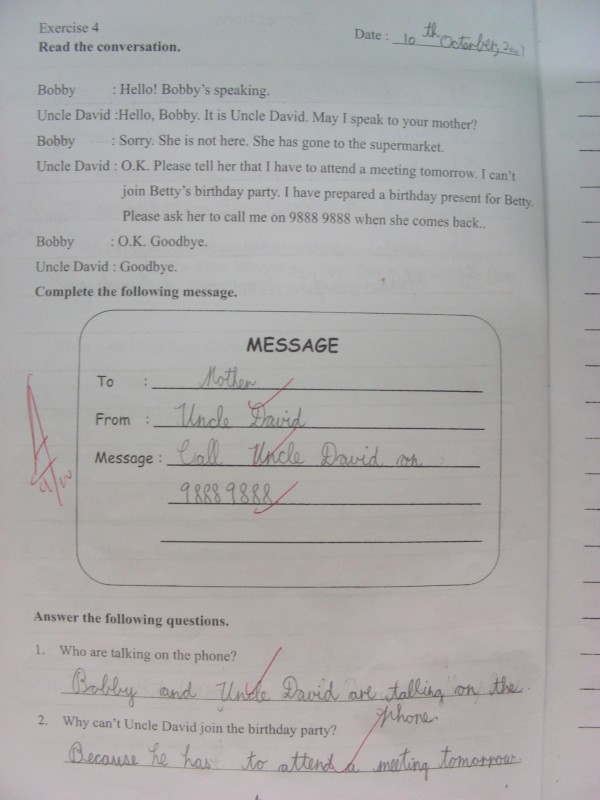 Exercise 4
Date : 10 th Octorber, 2007
Read the conversation.
Bobby : Hello! Bobby's speaking.
Uncle David :Hello, Bobby. It is Uncle David. May I speak to your mother?
Bobby : Sorry. She is not here. She has gone to the supermarket.
Uncle David : O.K. Please tell her that I have to attend a meeting tomorrow. I can't
join Betty's birthday party. I have prepared a birthday present for Betty.
Please ask her to call me on 9888 9888 when she comes back..
Bobby : O.K. Goodbye.
Uncle David : Goodbye.
Complete the following message.
MESSAGE
To : Mother
From : Uncle David
Message : Call Uncle David on
9888 9888
A
Answer the following questions.
1. Who are talking on the phone?
Bobby and Uncle David are talling on the
phone.
2. Why can't Uncle David join the birthday party?
Because he has to attend a meeting tomorrow.